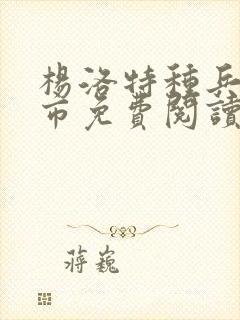 楊洛特種兵
市免費閱讀
蔣巍